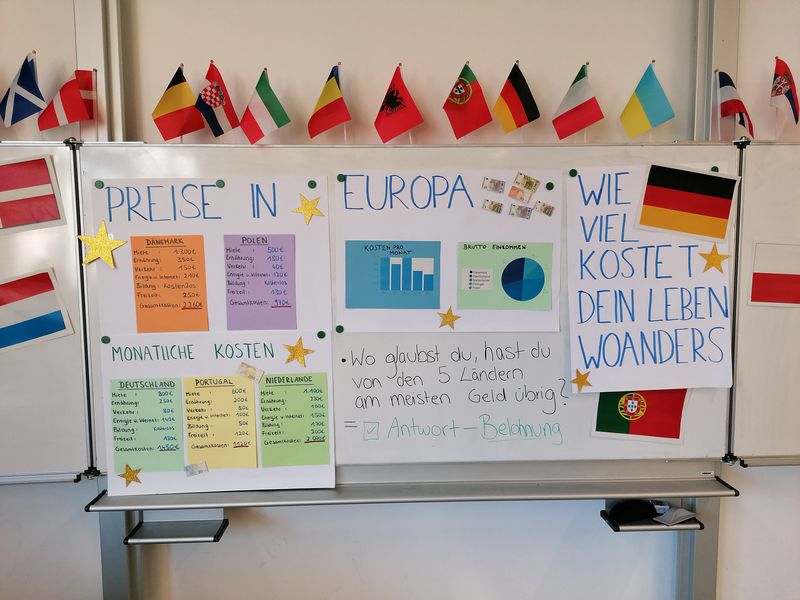 PREISE IN
EUROPA
WIE
VIEL
KOSTET
DEIN LEBEN
WOANDERS
DÄNEMARK
Miete : 1.300€
Ernährung: 350€
Verkehr: 150€
Energie u. Internet: 210€
Bildung: Kostenlos
Freizeit: 250€
Gesamtkosten: 2.260€
POLEN
Miete: 500€
Ernährung: 180€
Verkehr: 40€
Energie u. Internet: 120€
Bildung: Kostenlos
Freizeit: 130€
Gesamtkosten:
KOSTEN PRO
MONAT
BRUTTO EINKOMMEN
MONATLICHE KOSTEN
DEUTSCHLAND
Miete : 800€
Ernährung: 250€
Verkehr: 80€
Energie u. Internet: 140€
Bildung: Kostenlos
Freizeit: 180€
Gesamtkosten: 1450€
PORTUGAL
Miete : 600€
Ernährung: 200€
Verkehr: 50€
Energie u. Internet: 100€
Bildung: 50€
Freizeit: 120€
Gesamtkosten: 1120€
NIEDERLANDE
Miete: 1.100€
Ernährung:
Verkehr: 100€
Energie u. Internet:
Bildung:
Freizeit: 200€
Gesamtkosten: 2.000€
• Wo glaubst du, hast du
von den 5 Ländern
am meisten Geld übrig?
= Antwort – Belohnung